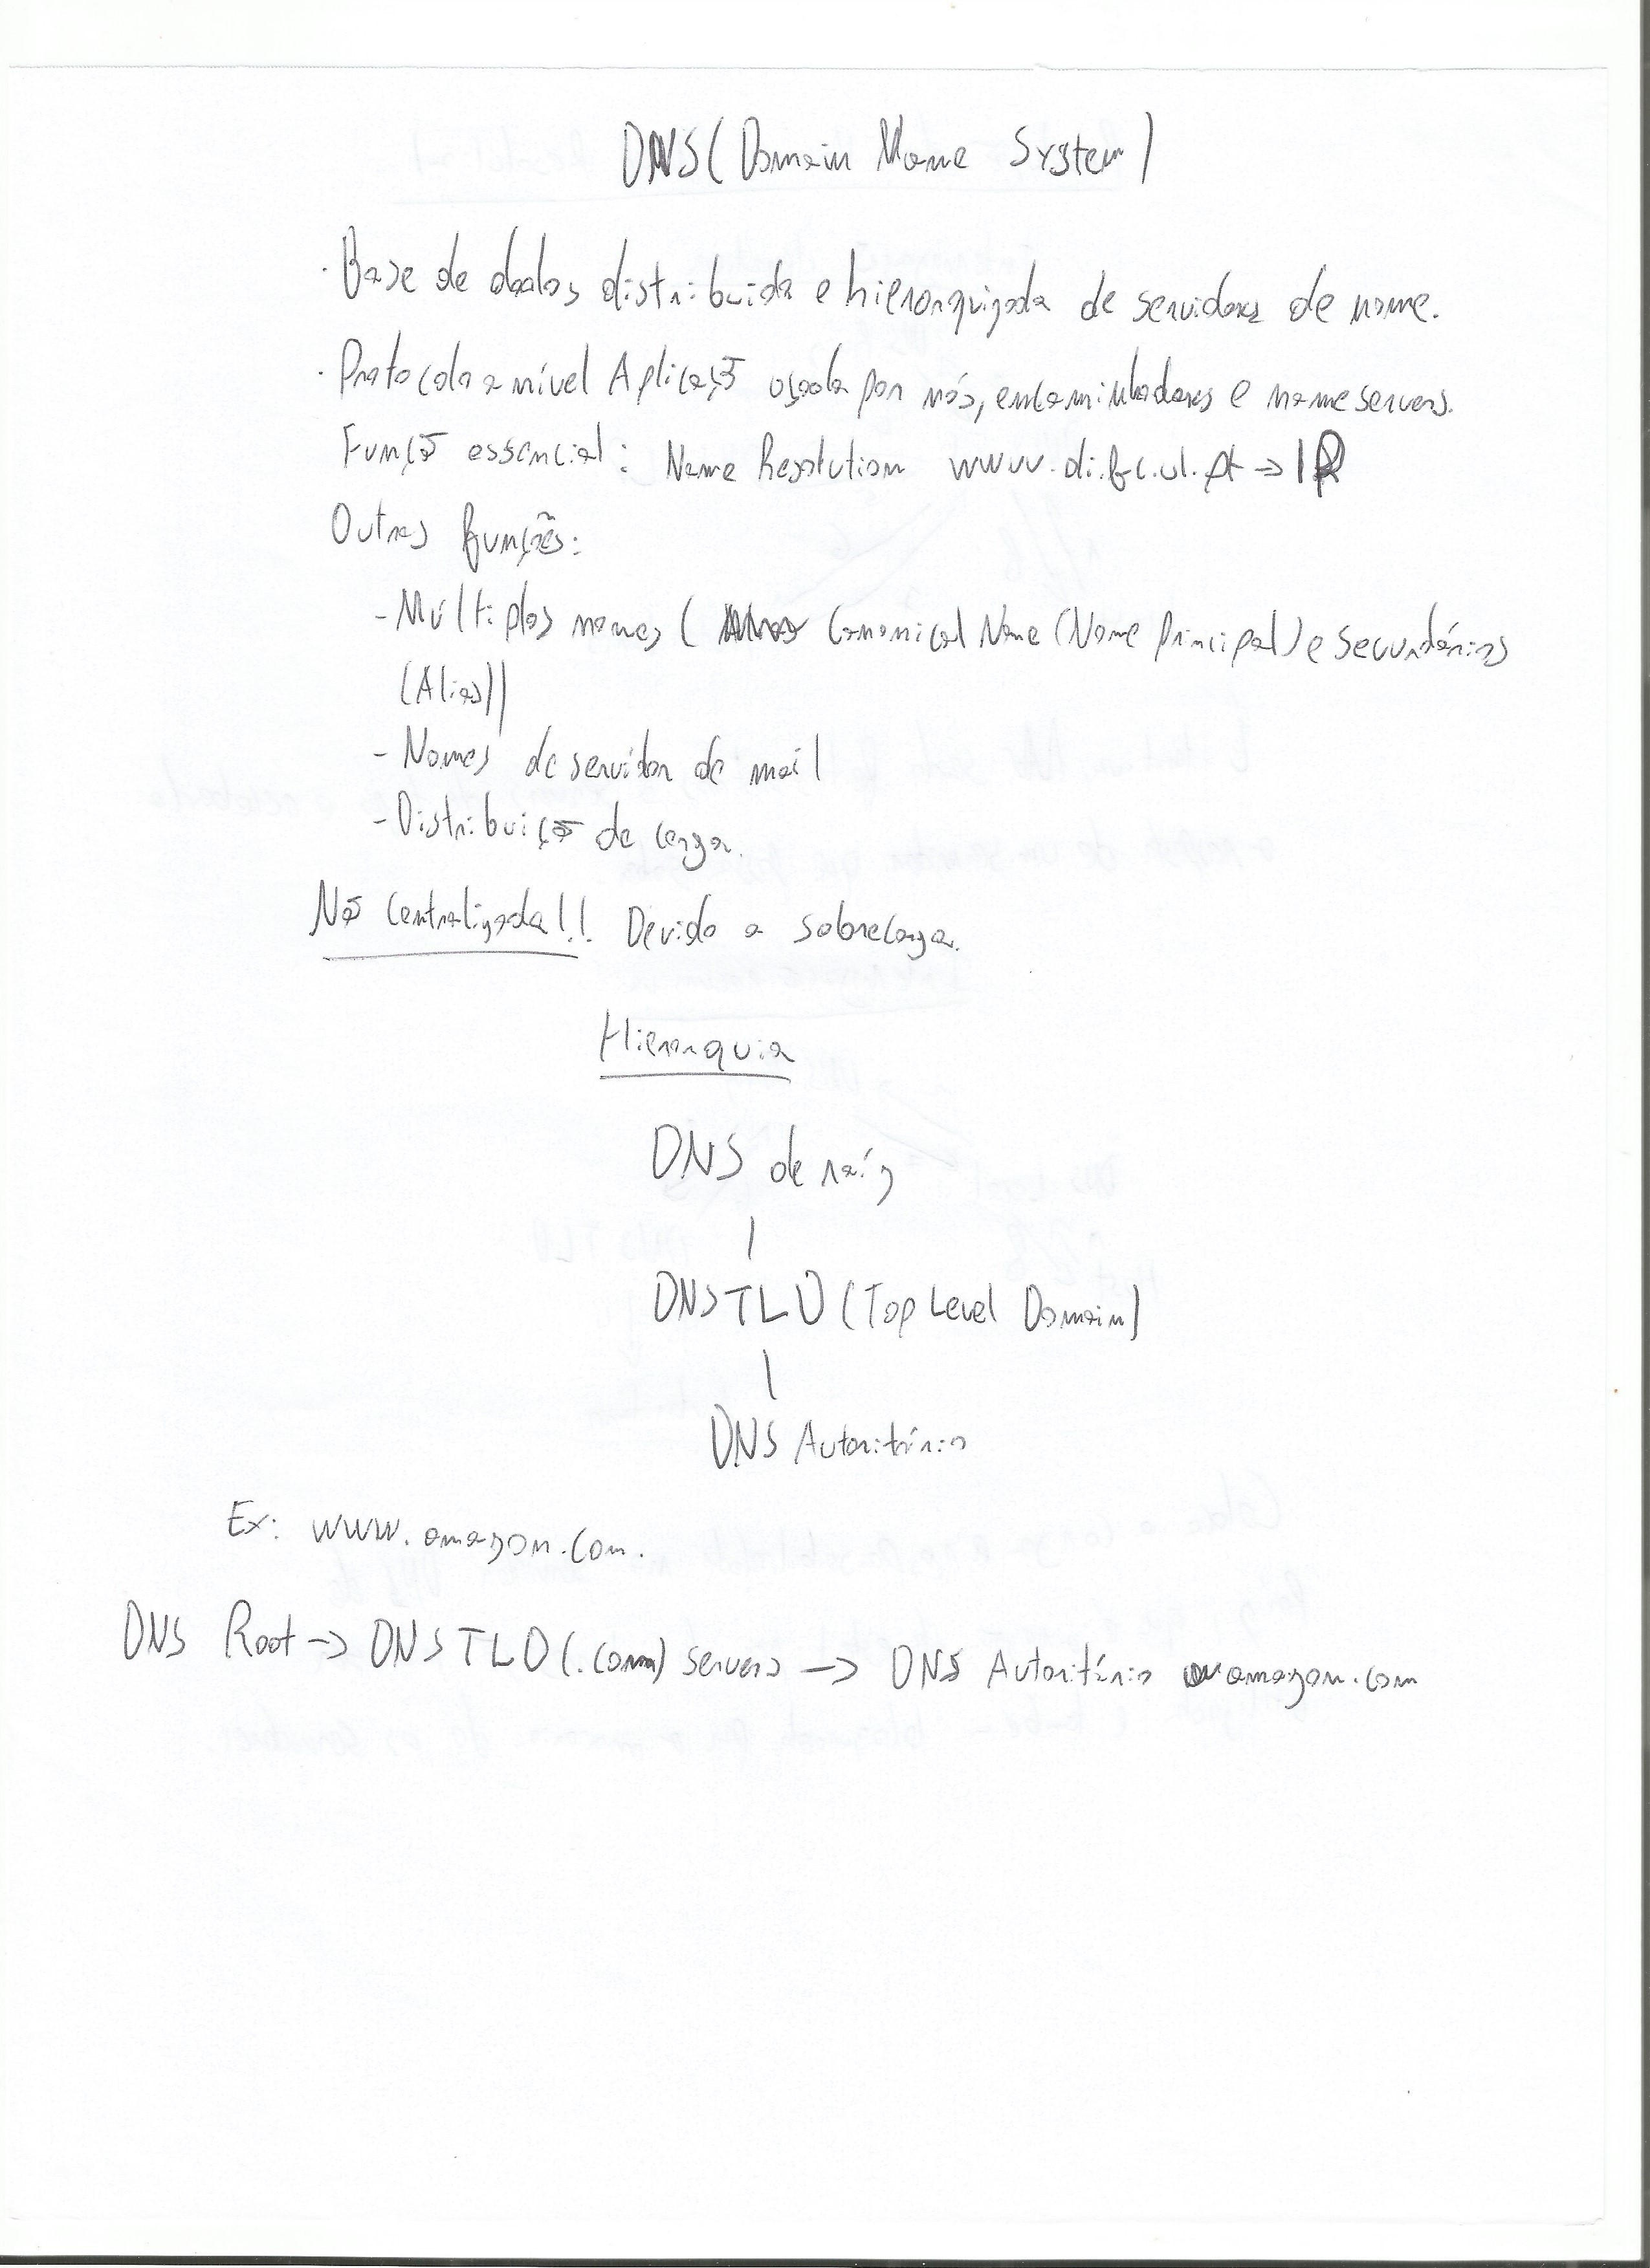 DNS (Domain Name System)
· Base de dados distribuida e hierarquizada de servidores de nome.
· Protocolo a nível Aplicação usado por nós, encaminhadores e name servers.
Função essencial: Name Resolution www.di.fc.ul.pt → IP
Outras funções:
- Múltiplos nomes ( Canonical Name (Nome Principal) e secundários
(Alias))
- Nomes de servidor de mail
- Distribuição de carga.
Não Centralizada!! Devido a sobrecarga.
Hierarquia
DNS de raíz
DNS TLD (Top Level Domain)
DNS Autoritário
Ex: www.amazon.com.
DNS Root → DNS TLD (.com) servers → DNS Autoritário amazon.com